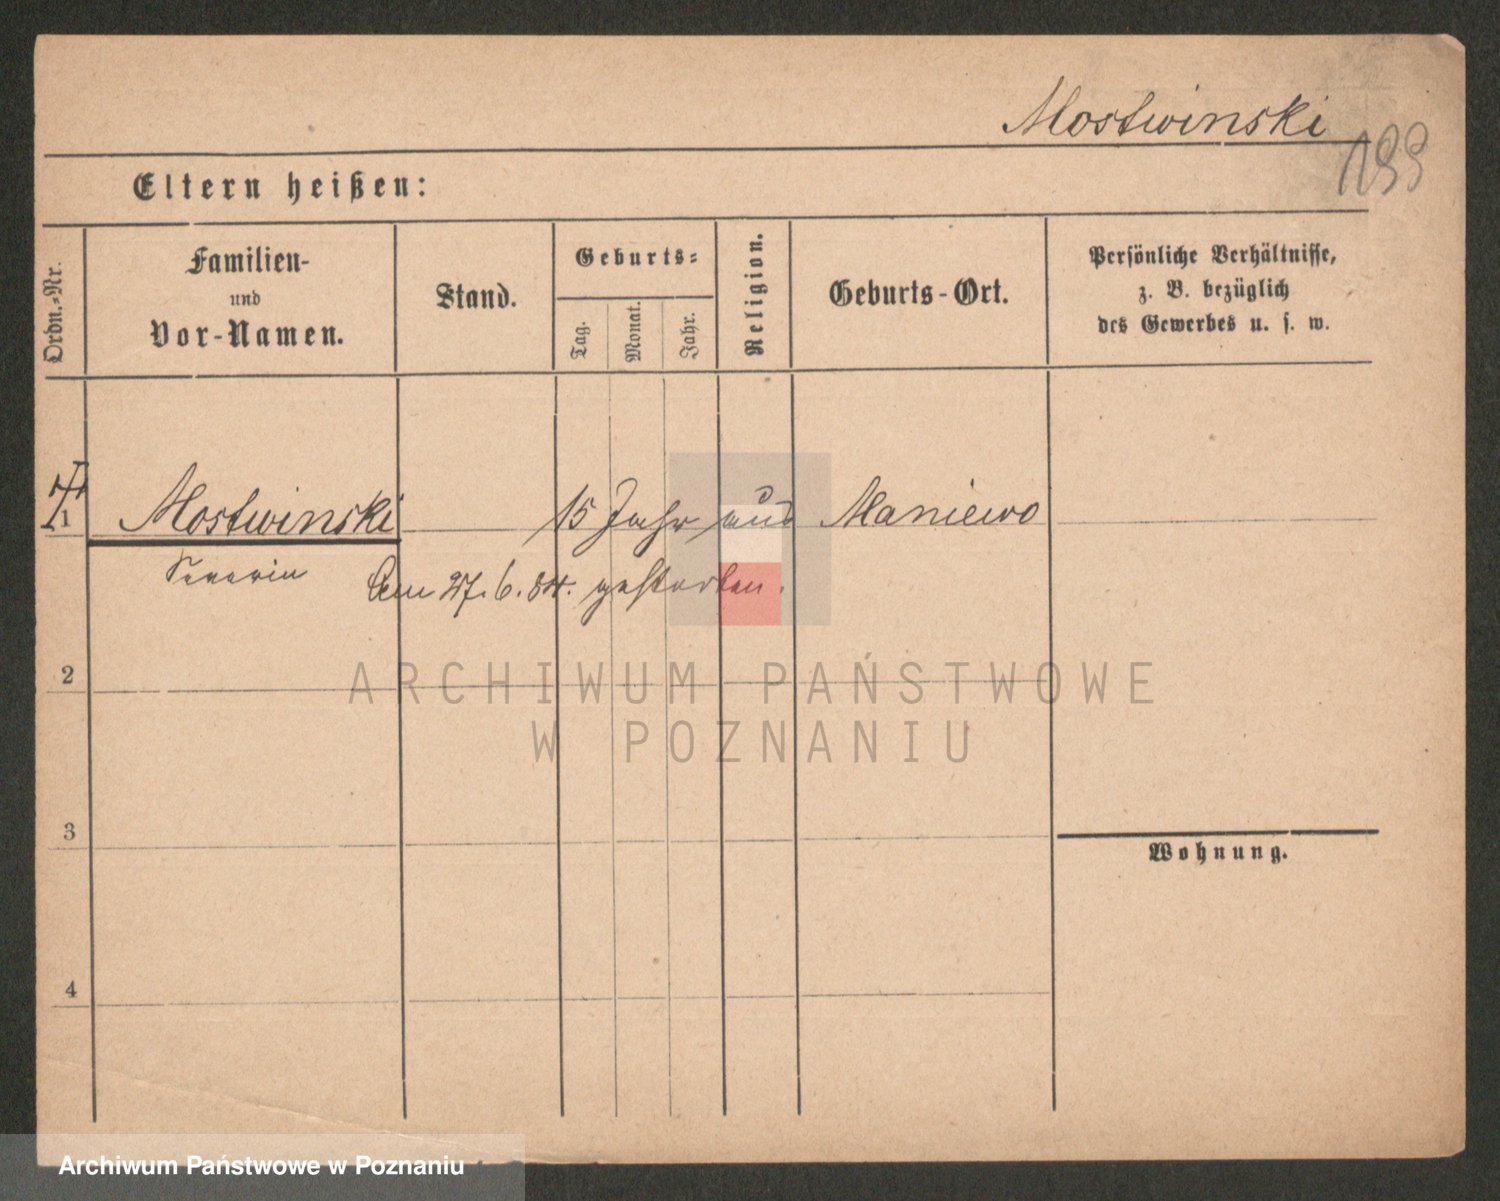 Mostwinski
199
Eltern heißen:
Ordn.-Nr.
Familien-
und
Vor-Namen.
Stand.
Geburts-
Tag.
Monat.
Jahr.
Religion.
Geburts-Ort.
Persönliche Verhältnisse,
z. B. bezüglich
des Gewerbes u. s. w.
1 Mostwinski 15 Jahr aus Maniewo
Severin
Am 27. 6. 84. gestorben.
2
ARCHIWUM PAŃSTWOWE
W POZNANIU
3
Wohnung.
4
Archiwum Państwowe w Poznaniu